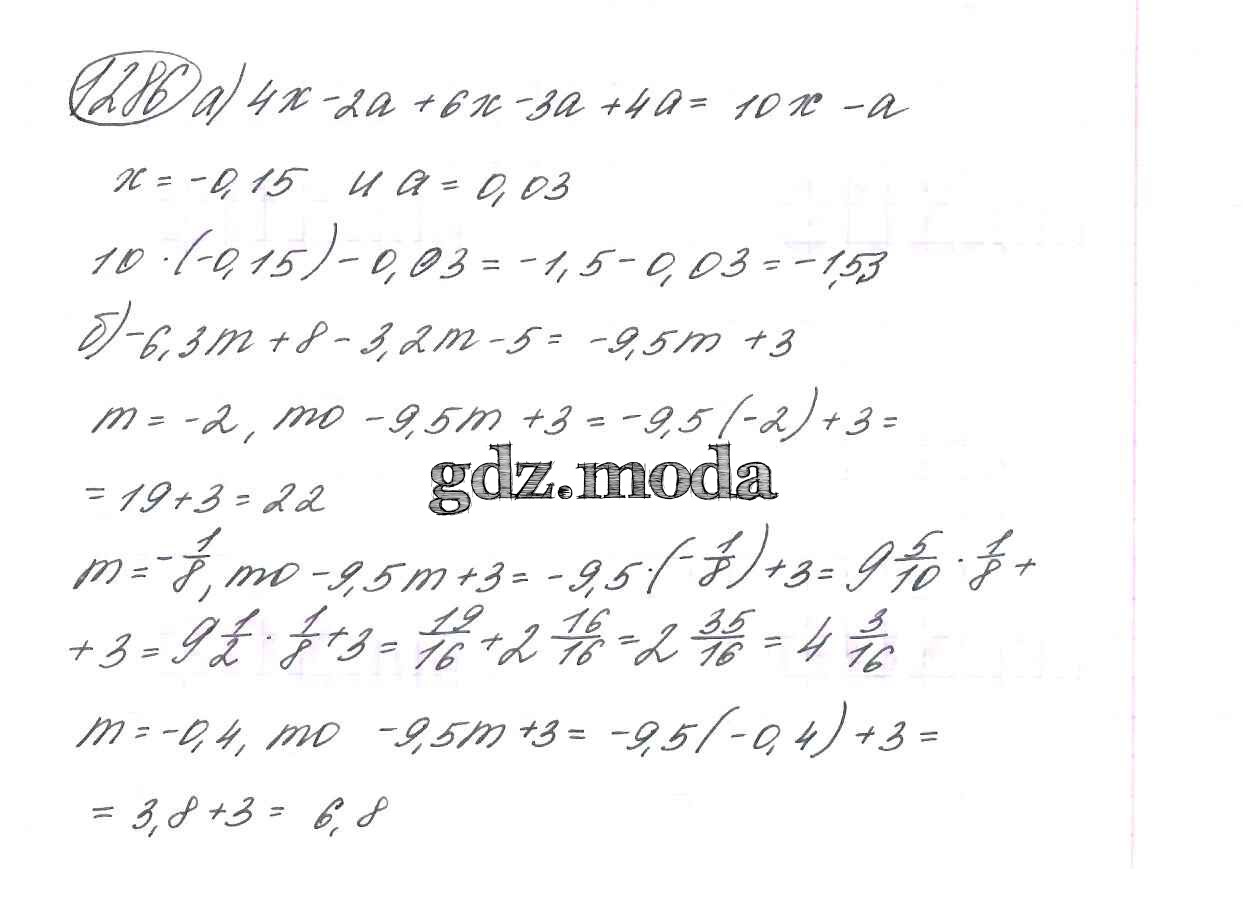 1286 а) 4x - 2a + 6x - 3a + 4a = 10x - a
x = -0,15 и a = 0,03
10 · (-0,15) - 0,03 = -1,5 - 0,03 = -1,53
б) -6,3m + 8 - 3,2m - 5 = -9,5m + 3
m = -2, то -9,5m + 3 = -9,5 (-2) + 3 =
gdz.moda
= 19 + 3 = 22
m = -1/8, то -9,5m + 3 = -9,5 · (-1/8) + 3 = 9 5/10 · 1/8 +
+ 3 = 9 1/2 · 1/8 + 3 = 19/16 + 2 16/16 = 2 35/16 = 4 3/16
m = -0,4, то -9,5m + 3 = -9,5 (-0,4) + 3 =
= 3,8 + 3 = 6,8